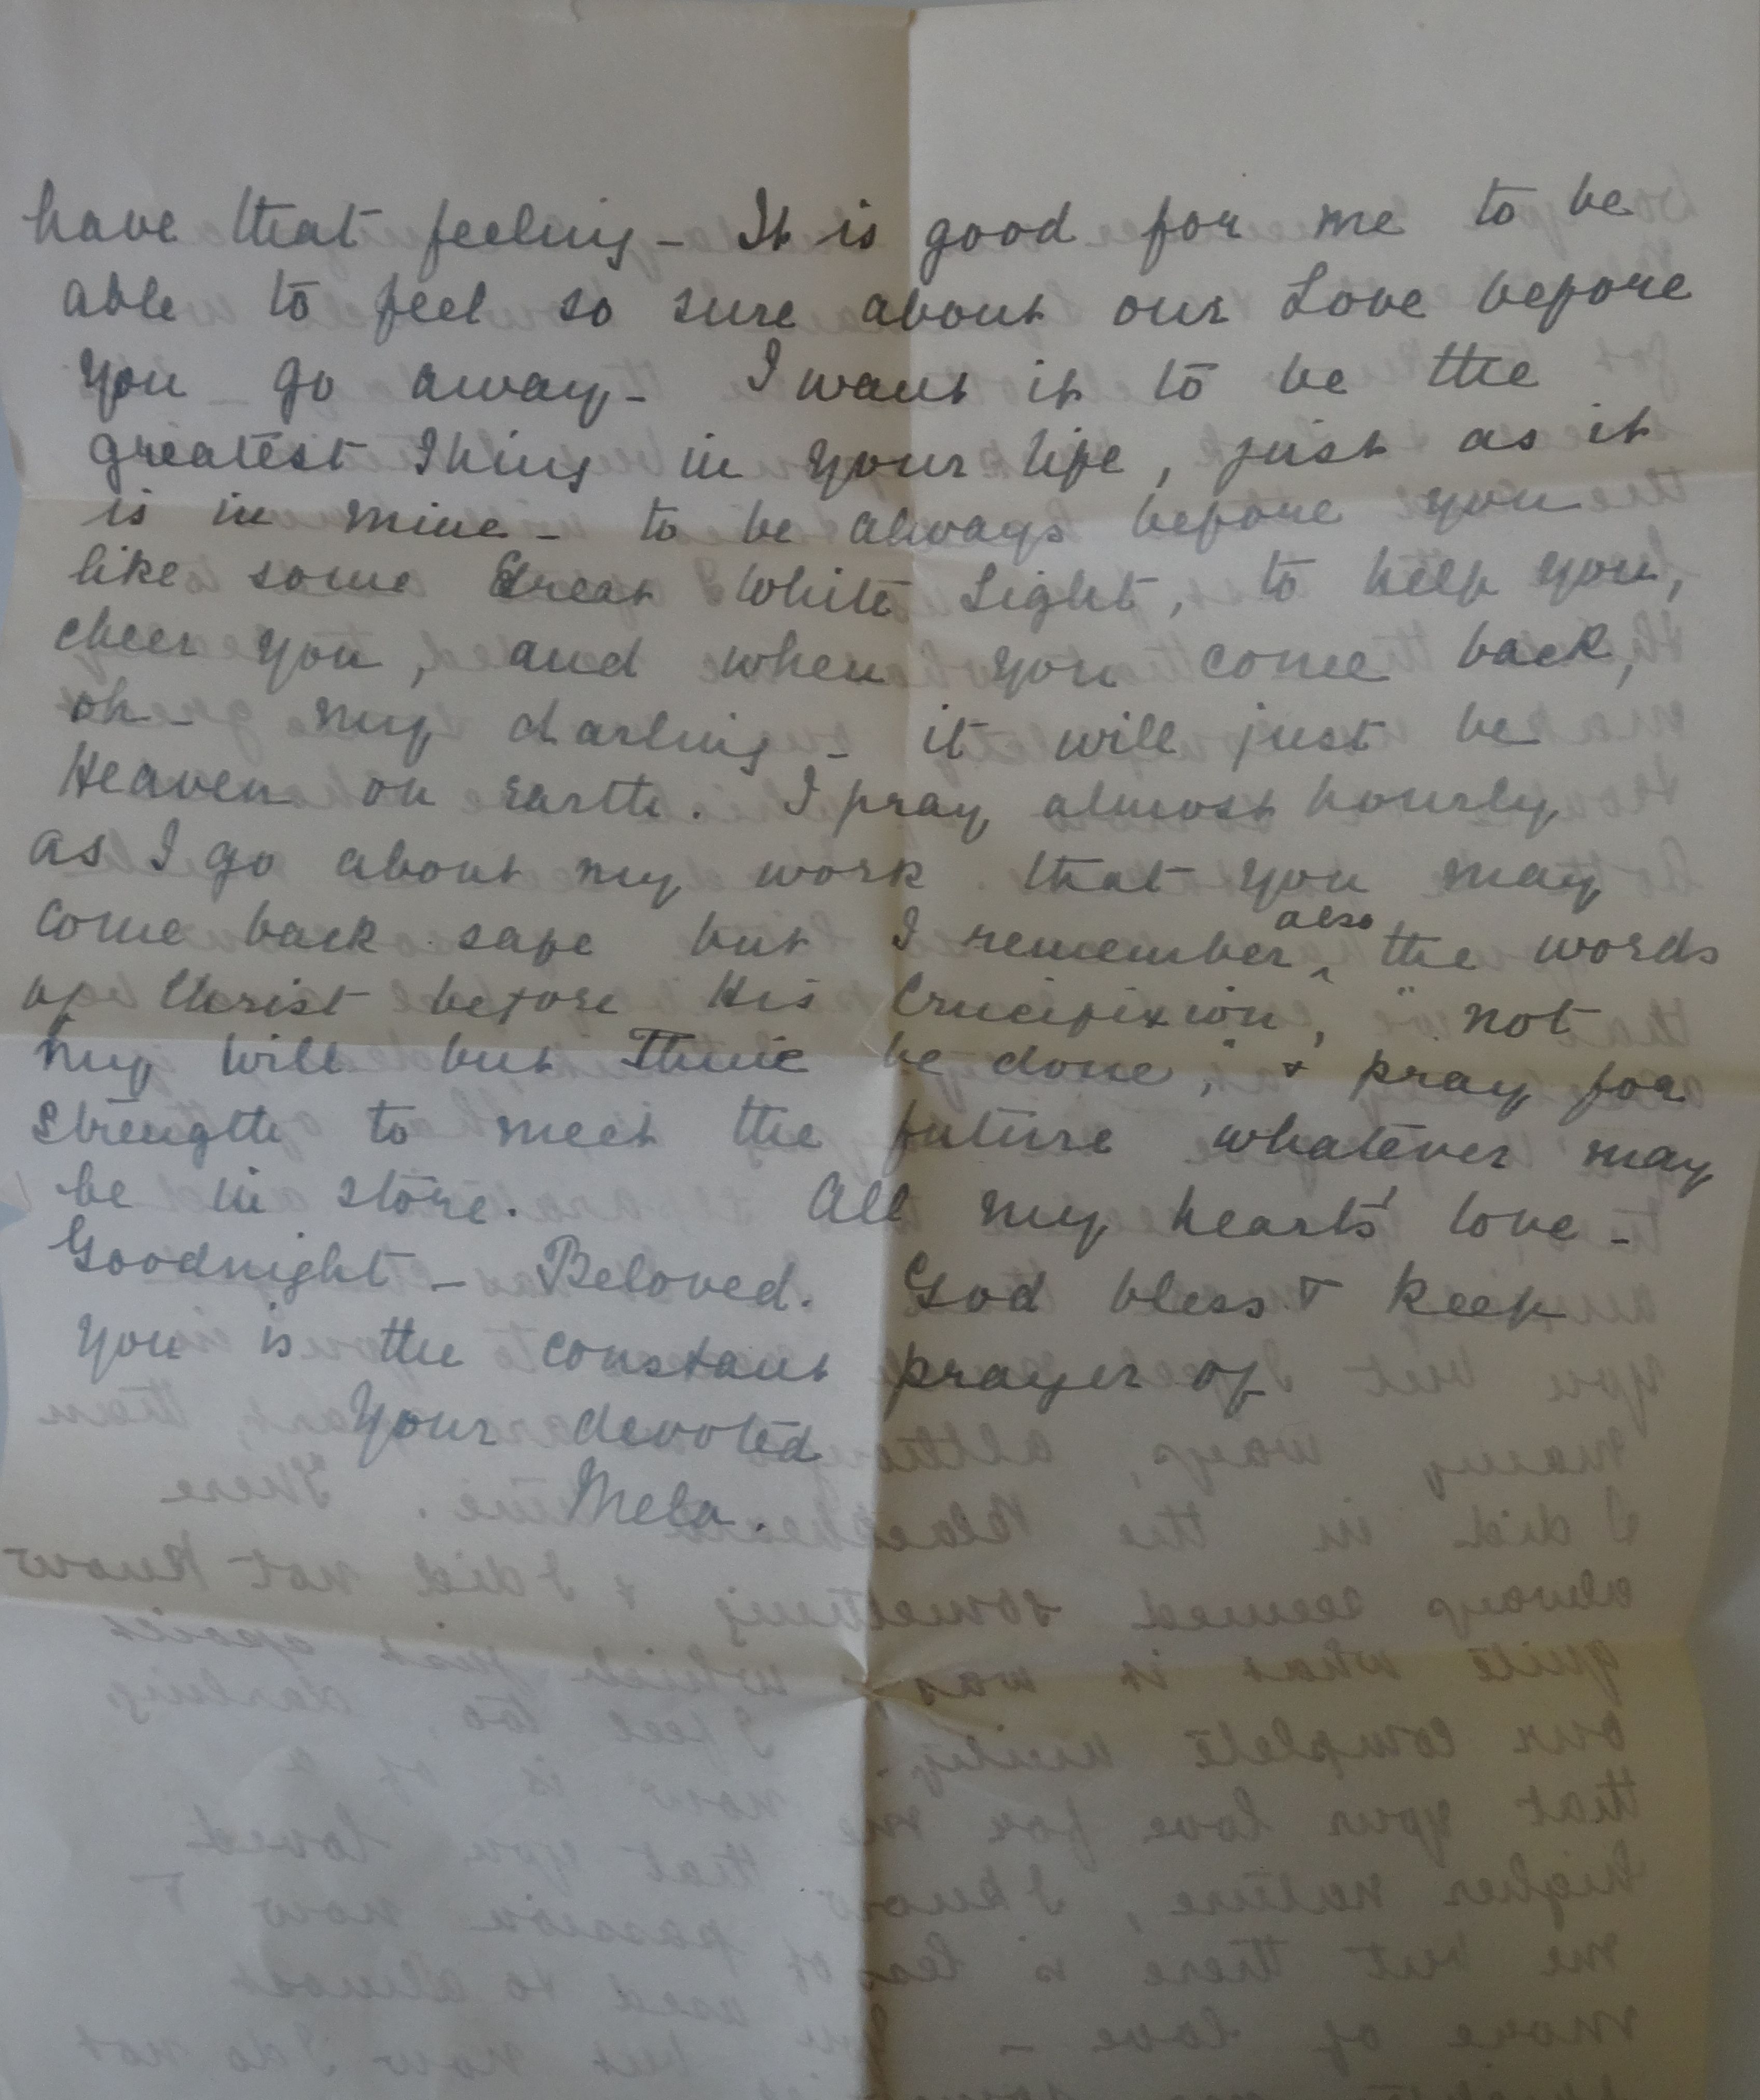 have that feeling - It is good for me to be
able to feel so sure about our Love before
you go away - I want it to be the
greatest Thing in your life, just as it
is in mine - to be always before you
like some Great White Light, to help you,
cheer you, and when you come back,
oh - my darling - it will just be
Heaven on Earth. I pray almost hourly
as I go about my work that you may
come back safe but I remember also the words
of Christ before His Crucifixion, "not
my will but Thine be done," & pray for
strength to meet the future whatever may
be in store. All my heart's love -
Goodnight - Beloved. God bless & keep
you is the constant prayer of
Your devoted
Mela.